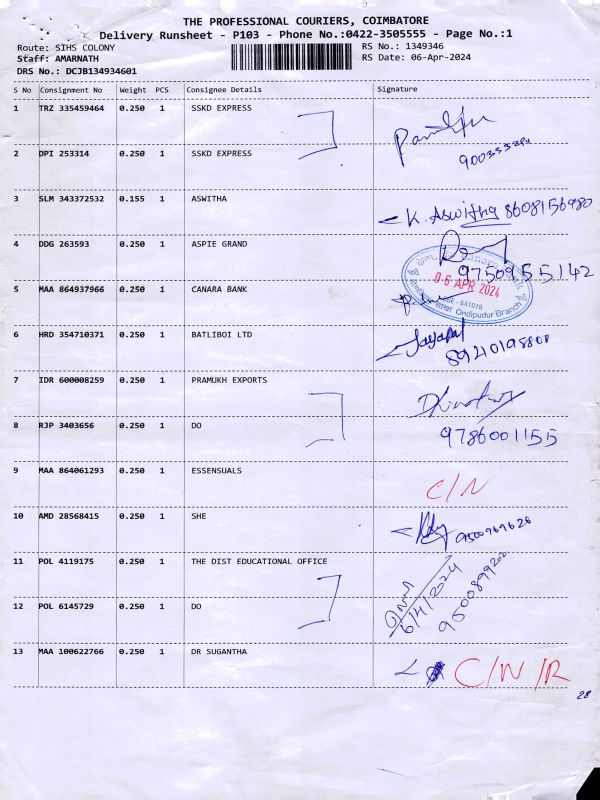 THE PROFESSIONAL COURIERS, COIMBATORE
Delivery Runsheet - P103 - Phone No.:0422-3505555 - Page No.:1
Route: SIHS COLONY RS No.: 1349346
Staff: AMARNATH RS Date: 06-Apr-2024
DRS No.: DCJB134934601
S No Consignment No Weight PCS Consignee Details Signature
1 TRZ 335459464 0.250 1 SSKD EXPRESS
2 DPI 253314 0.250 1 SSKD EXPRESS
3 SLM 343372532 0.155 1 ASWITHA K. Aswitha 8608156980
4 DDG 263593 0.250 1 ASPIE GRAND 9750955142
5 MAA 864937966 0.250 1 CANARA BANK 06 APR 2024
641016
Ondipudur Branch
6 HRD 354710371 0.250 1 BATLIBOI LTD
7 IDR 600008259 0.250 1 PRAMUKH EXPORTS
8 RJP 3403656 0.250 1 DO 9786001155
9 MAA 864061293 0.250 1 ESSENSUALS C/N
10 AMD 28568415 0.250 1 SHE
11 POL 4119175 0.250 1 THE DIST EDUCATIONAL OFFICE 6/4/2024
12 POL 6145729 0.250 1 DO
13 MAA 100622766 0.250 1 DR SUGANTHA C/N/R
28